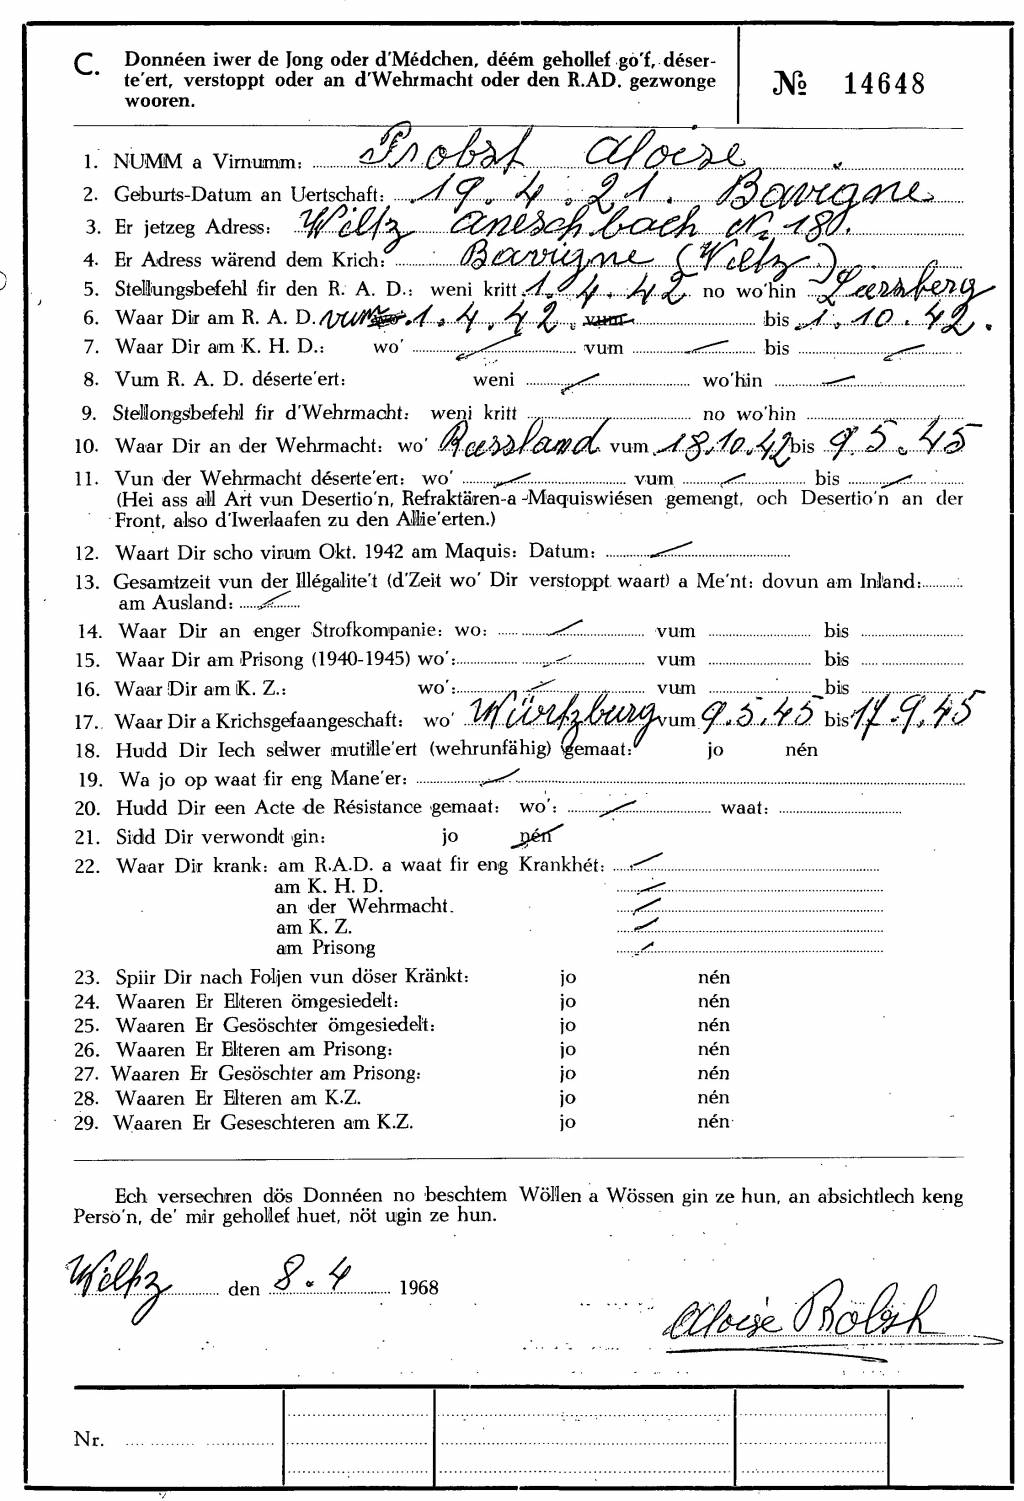 C. Donnéen iwer de Jong oder d'Médchen, déém gehollef go'f, déser-
te'ert, verstoppt oder an d'Wehrmacht oder den R.AD. gezwonge
wooren.
№ 14648
1. NUMM a Virnumm: Probst Aloise
2. Geburts-Datum an Uertschaft: 19.4.21. Bavigne
3. Er jetzeg Adress: Wiltz Aneschbach Nr 180.
4. Er Adress wärend dem Krich: Bavigne (Wiltz)
5. Stellungsbefehl fir den R. A. D.: weni kritt 1.4.42 no wo'hin
6. Waar Dir am R. A. D. vum 1.4.42. vum bis 1.10.42.
7. Waar Dir am K. H. D.: wo' vum bis
8. Vum R. A. D. déserte'ert: weni wo'hin
9. Stellongsbefehl fir d'Wehrmacht: weni kritt no wo'hin
10. Waar Dir an der Wehrmacht: wo' Russland vum 18.10.42 bis 9.5.45
11. Vun der Wehrmacht déserte'ert: wo' vum bis
(Hei ass all Art vun Desertio'n, Refraktären-a -Maquiswiésen gemengt, och Desertio'n an der
Front, also d'Iwerlaafen zu den Allie'erten.)
12. Waart Dir scho virum Okt. 1942 am Maquis: Datum:
13. Gesamtzeit vun der Illégalite't (d'Zeit wo' Dir verstoppt waart) a Me'nt: dovun am Inland:
am Ausland:
14. Waar Dir an enger Strofkompanie: wo: vum bis
15. Waar Dir am Prisong (1940-1945) wo': vum bis
16. Waar Dir am K. Z.: wo': vum bis
17. Waar Dir a Krichsgefaangeschaft: wo' Würtzburg vum 9.5.45 bis 17.9.45
18. Hudd Dir Iech selwer mutille'ert (wehrunfähig) gemaat: jo nén
19. Wa jo op waat fir eng Mane'er:
20. Hudd Dir een Acte de Résistance gemaat: wo': waat:
21. Sidd Dir verwondt gin: jo nén
22. Waar Dir krank: am R.A.D. a waat fir eng Krankhét:
am K. H. D.
an der Wehrmacht.
am K. Z.
am Prisong
23. Spiir Dir nach Foljen vun döser Kränkt: jo nén
24. Waaren Er Elteren ömgesiedelt: jo nén
25. Waaren Er Gesöschter ömgesiedelt: jo nén
26. Waaren Er Elteren am Prisong: jo nén
27. Waaren Er Gesöschter am Prisong: jo nén
28. Waaren Er Elteren am K.Z. jo nén
29. Waaren Er Geseschteren am K.Z. jo nén
Ech versechren dös Donnéen no beschtem Wöllen a Wössen gin ze hun, an absichtlech keng
Perso'n, de' mir gehollef huet, nöt ugin ze hun.
Wiltz den 8.4 1968
Aloise Probst
Nr.